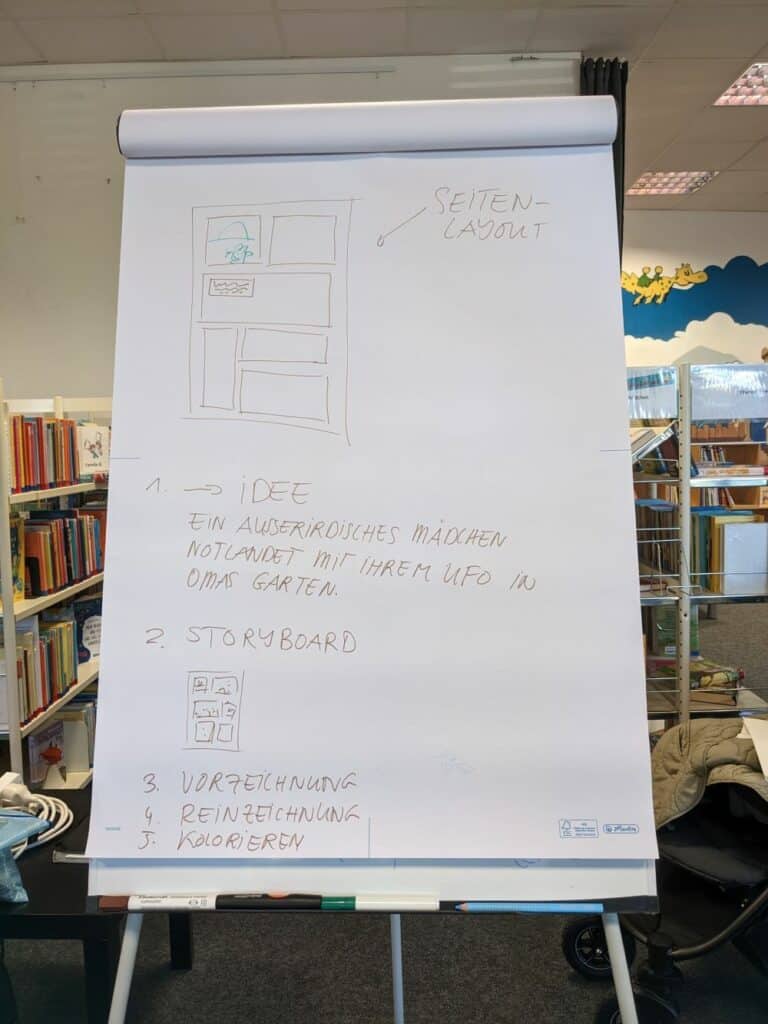 SEITEN-
LAYOUT
1. → IDEE
EIN AUßERIRDISCHES MÄDCHEN
NOTLANDET MIT IHREM UFO IN
OMAS GARTEN.
2. STORYBOARD
3. VORZEICHNUNG
4. REINZEICHNUNG
5. KOLORIEREN